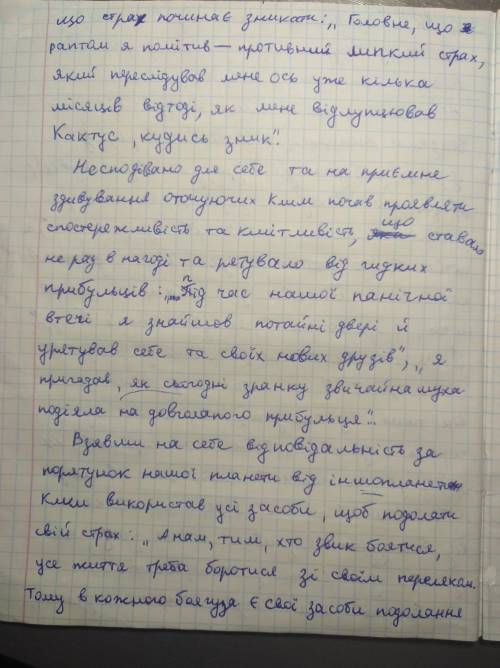 що страх починає зникати: „Головне, що
раптом я помітив — противний липкий страх,
який переслідував мене ось уже кілька
місяців відтоді, як мене відлупцював
Кактус, кудись зник".
Несподівано для себе та на приємне
здивування оточуючих Клим почав проявляти
спостережливість та кмітливість, що ставало
не раз в нагоді та рятувало від гидких
прибульців: „... під час нашої панічної
втечі я знайшов потайні двері й
урятував себе та своїх нових друзів", „я
пригадав, як сьогодні зранку звичайна муха
подіяла на довголапого прибульця"..
Взявши на себе відповідальність за
порятунок нашої планети від іншопланетян
Клим використав усі засоби, щоб подолати
свій страх: „А нам, тим, хто звик боятися,
усе життя треба боротися зі своїм переляком.
Тому в кожного боягуза є свої засоби подолання